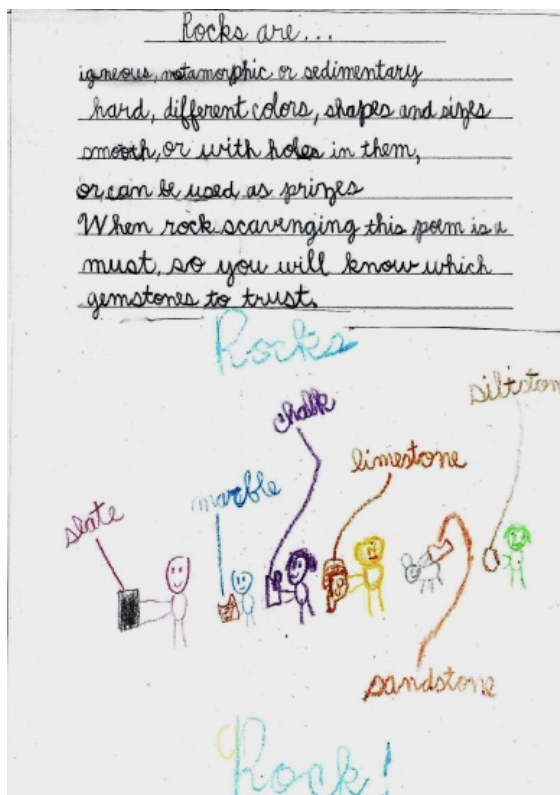 Rocks are...
igneous, metamorphic or sedimentary
hard, different colors, shapes and sizes
smooth, or with holes in them,
or can be used as prizes
When rock scavenging this poem is a
must, so you will know which
gemstones to trust.
Rocks
chalk
siltston
limestone
marble
slate
sandstone
Rock!